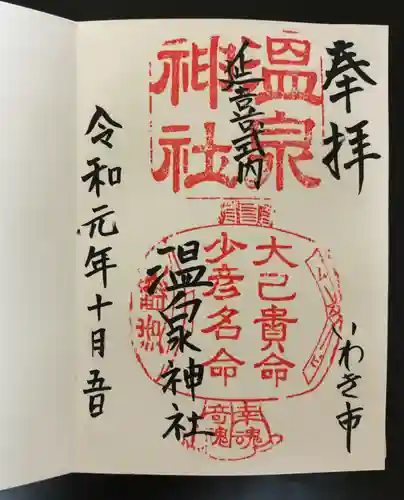 奉拝
いわき市
温泉
神社
延喜式内
大己貴命
少彦名命
幸魂
奇魂
温泉神社
令和元年十月吾日